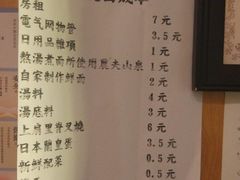 房租
電气网物管 7元
日用品雜項 3.5元
熬湯煮面所使用農夫山泉 1元
自家制作鮮面 2元
湯料 4元
湯底料 3元
上肩里脊叉燒 6元
日本蘭皇蛋 3.5元
新鮮配菜 0.5元
0.5元